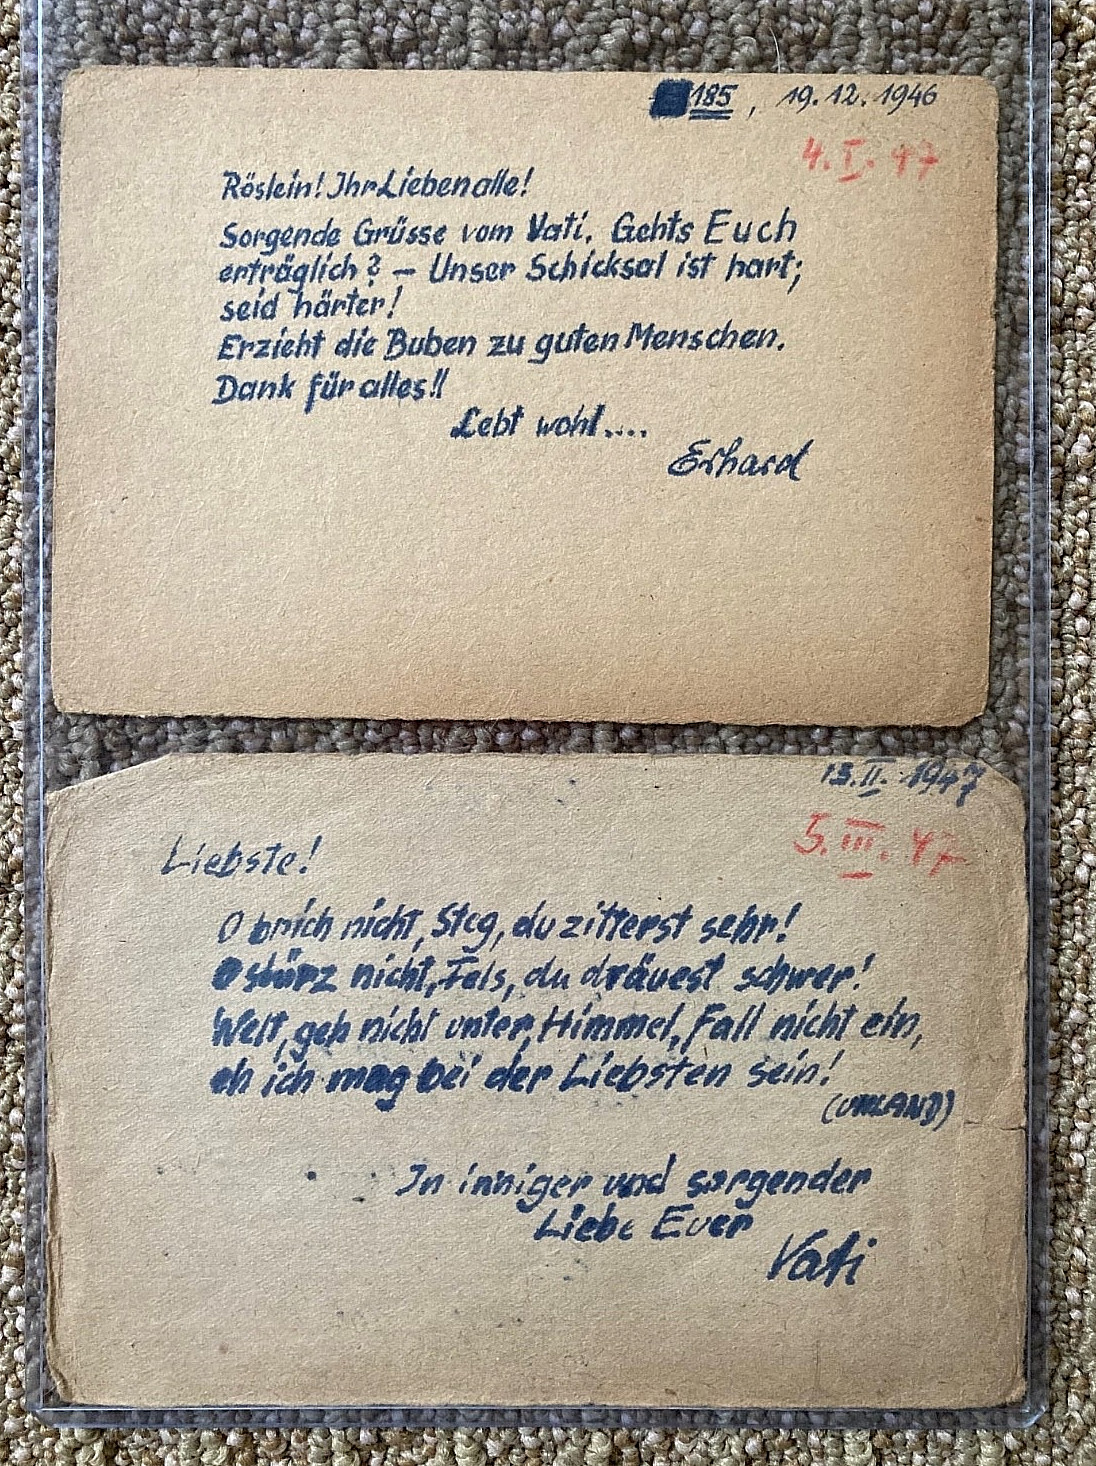 185, 19.12.1946
4.I.47
Röslein! Ihr Lieben alle!
Sorgende Grüsse vom Vati. Gehts Euch
erträglich? – Unser Schicksal ist hart;
seid härter!
Erzieht die Buben zu guten Menschen.
Dank für alles!!
Lebt wohl....
Erhard
13.II.1947
5.III.47
Liebste!
O brich nicht, Steg, du zitterst sehr!
O stürz nicht, Fels, du dräuest schwer!
Welt, geh nicht unter, Himmel, fall nicht ein,
eh ich mag bei der Liebsten sein!
(UHLAND)
In inniger und sorgender
Liebe Euer
Vati